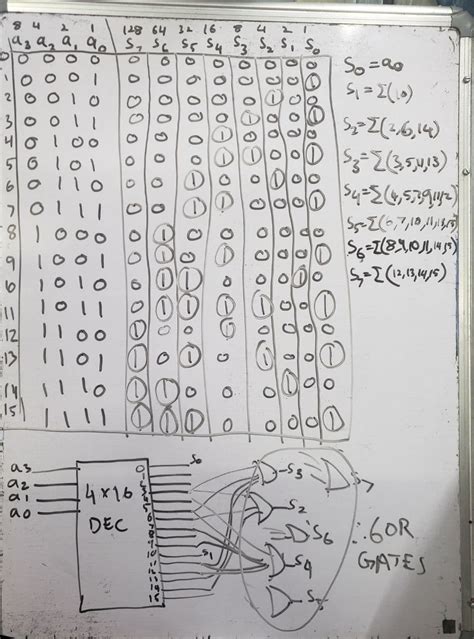 8 4 2 1 128 64 32 16 8 4 2 1
a3 a2 a1 a0 S7 S6 S5 S4 S3 S2 S1 S0
0 0 0 0 0 0 0 0 0 0 0 0 0
1 0 0 0 1 0 0 0 0 0 0 0 1
2 0 0 1 0 0 0 0 0 0 1 0 0
3 0 0 1 1 0 0 0 0 1 0 0 1
4 0 1 0 0 0 0 0 1 0 0 0 0
5 0 1 0 1 0 0 0 1 1 0 0 1
6 0 1 1 0 0 0 1 0 0 1 0 0
7 0 1 1 1 0 0 1 1 0 0 0 1
8 1 0 0 0 0 1 0 0 0 0 0 0
9 1 0 0 1 0 1 0 1 0 0 0 1
10 1 0 1 0 0 1 1 0 0 0 1 0
11 1 0 1 1 0 1 1 1 1 0 0 1
12 1 1 0 0 1 0 0 1 0 0 0 0
13 1 1 0 1 1 0 1 0 1 0 0 1
14 1 1 1 0 1 1 0 0 0 1 0 0
15 1 1 1 1 1 1 1 0 0 0 0 1
S0=a0
S1=Σ(10)
S2=Σ(2,6,14)
S3=Σ(3,5,4,13)
S4=Σ(4,5,7,9,11,12)
S5=Σ(6,7,10,11,13,15)
S6=Σ(8,9,10,11,14,15)
S7=Σ(12,13,14,15)
a3
a2
a1
a0
4×16
DEC
S0
S1
S3
S7
S2
S6
S4
S5
∴ 6 OR
GATES